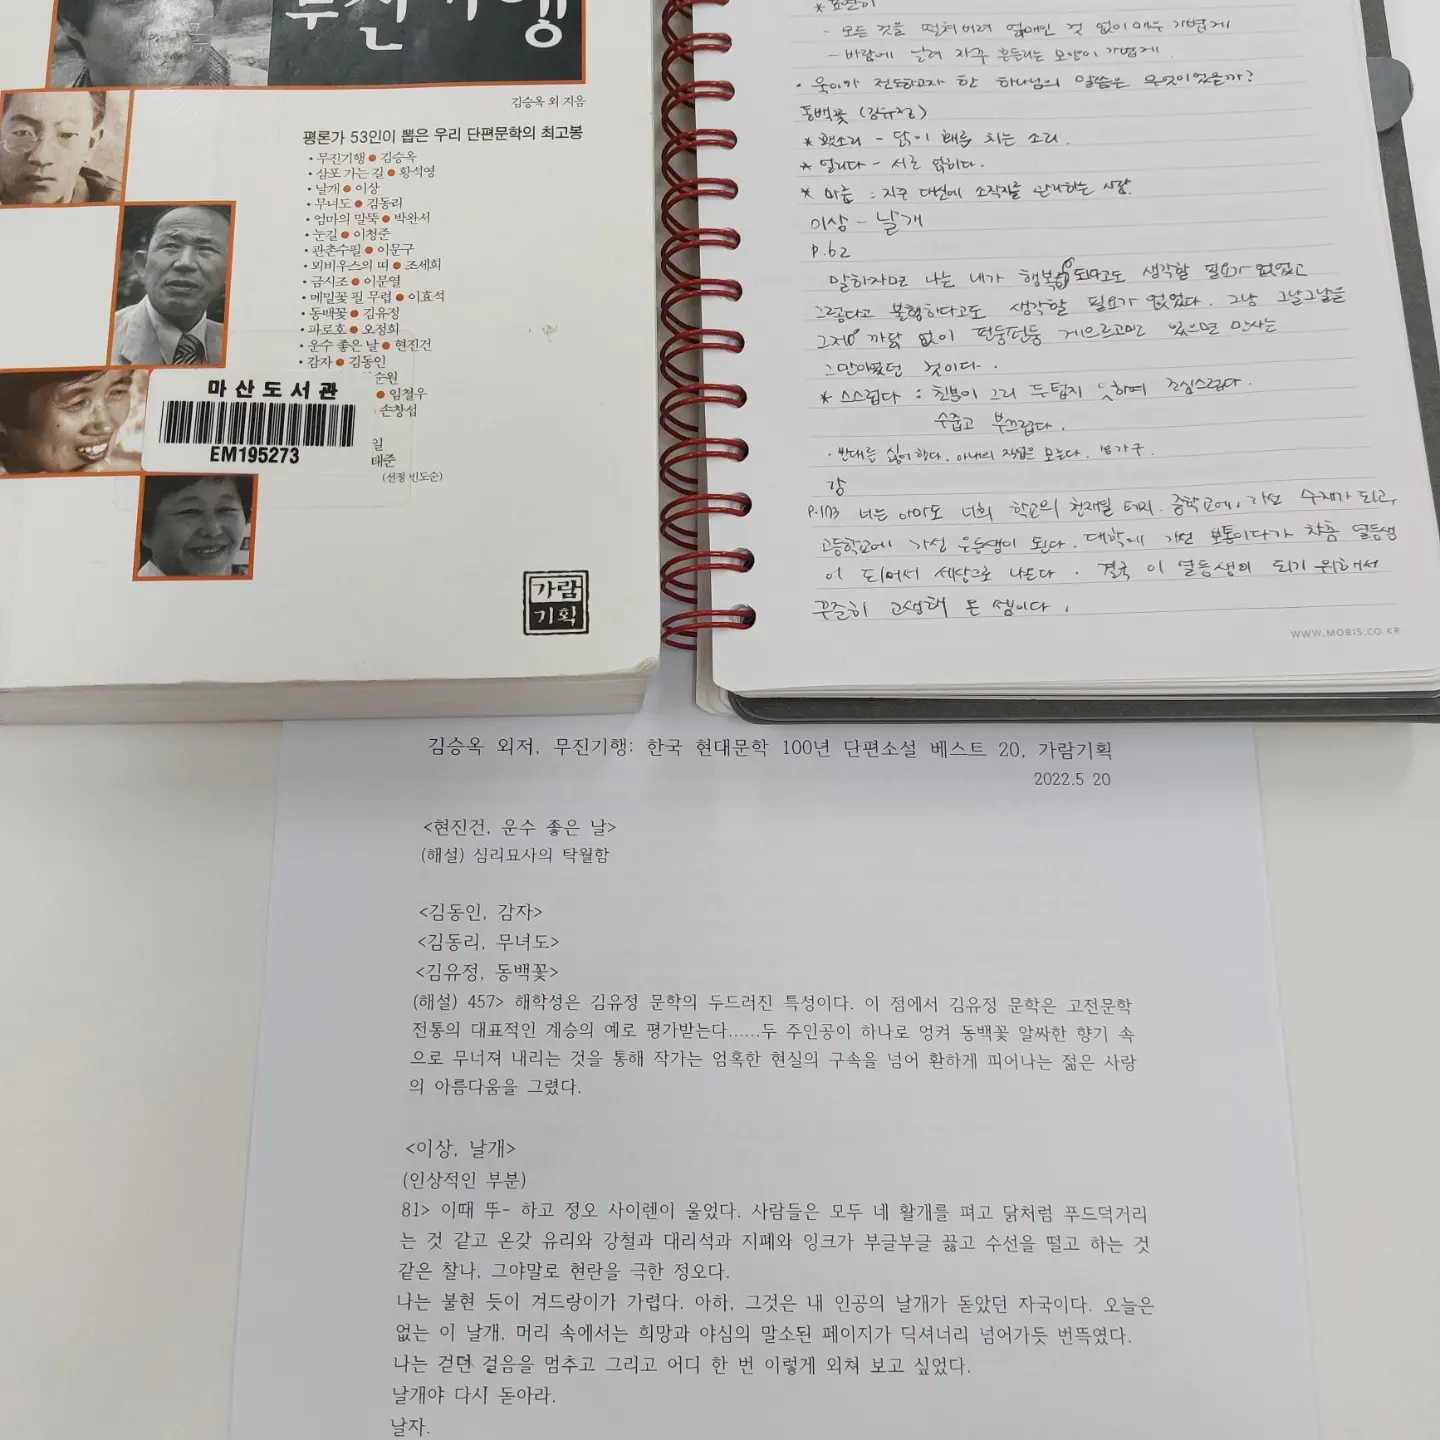 무진기행
김승옥 외 지음
평론가 53인이 뽑은 우리 단편문학의 최고봉
• 무진기행 ● 김승옥
• 삼포 가는 길 ● 황석영
• 날개 ● 이상
• 무녀도 ● 김동리
• 엄마의 말뚝 ● 박완서
• 눈길 ● 이청준
• 관촌수필 ● 이문구
• 뫼비우스의 띠 ● 조세희
• 금시조 ● 이문열
• 메밀꽃 필 무렵 ● 이효석
• 동백꽃 ● 김유정
• 파로호 ● 오정희
• 운수 좋은 날 ● 현진건
• 감자 ● 김동인
순원
● 임철우
손창섭
일
태준
(선정 빈도순)
마산도서관
EM195273
가람
기획
* 표연히
- 모든 것을 떨쳐버려 얽매인 것 없이 매우 가볍게
- 바람에 날려 자꾸 흔들리는 모양이 가볍게
• 욱이가 전도하고자 한 하나님의 말씀은 무엇이었을까?
동백꽃 (김유정)
* 횃소리 - 닭이 홰를 치는 소리.
* 얼리다 - 서로 얽히다.
* 마름 : 지주 대신에 소작지를 관리하는 사람.
이상 - 날개
P.62
말하자면 나는 내가 행복되다고도 생각할 필요가 없었고
그렇다고 불행하다고도 생각할 필요가 없었다. 그냥 그날그날을
그저 까닭 없이 펀둥펀둥 게으르고만 있으면 만사는
그만이었던 것이다.
* 스스럽다 : 친분이 그리 두텁지 못하여 조심스럽다.
수줍고 부끄럽다.
• 반대를 싫어한다. 아내의 직업은 모른다. 18가구.
P.173 너는 아마도 너희 학교의 천재일 테지. 중학교에 가선 수재가 되고,
고등학교에 가선 우등생이 된다. 대학에 가선 보통이다가 차츰 열등생
이 되어서 세상으로 나온다. 결국 이 열등생이 되기 위해서
꾸준히 고생해 온 셈이다.
WWW.MOBIS.CO.KR
김승옥 외저, 무진기행: 한국 현대문학 100년 단편소설 베스트 20, 가람기획
2022.5 20
<현진건, 운수 좋은 날>
(해설) 심리묘사의 탁월함
<김동인, 감자>
<김동리, 무녀도>
<김유정, 동백꽃>
(해설) 457> 해학성은 김유정 문학의 두드러진 특성이다. 이 점에서 김유정 문학은 고전문학
전통의 대표적인 계승의 예로 평가받는다......두 주인공이 하나로 엉켜 동백꽃 알싸한 향기 속
으로 무너져 내리는 것을 통해 작가는 엄혹한 현실의 구속을 넘어 환하게 피어나는 젊은 사랑
의 아름다움을 그렸다.
<이상, 날개>
(인상적인 부분)
81> 이때 뚜- 하고 정오 사이렌이 울었다. 사람들은 모두 네 활개를 펴고 닭처럼 푸드덕거리
는 것 같고 온갖 유리와 강철과 대리석과 지폐와 잉크가 부글부글 끓고 수선을 떨고 하는 것
같은 찰나, 그야말로 현란을 극한 정오다.
나는 불현 듯이 겨드랑이가 가렵다. 아하, 그것은 내 인공의 날개가 돋았던 자국이다. 오늘은
없는 이 날개, 머리 속에서는 희망과 야심의 말소된 페이지가 딕셔너리 넘어가듯 번뜩였다.
나는 걷던 걸음을 멈추고 그리고 어디 한 번 이렇게 외쳐 보고 싶었다.
날개야 다시 돋아라.
날자.